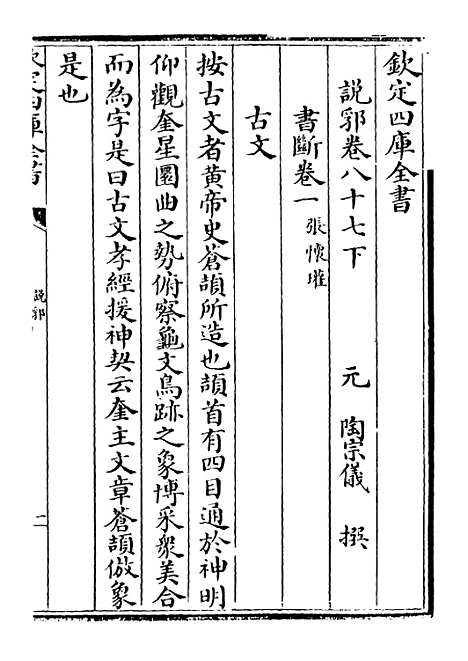 欽定四庫全書
說郛卷八十七下
元 陶宗儀 撰
書斷卷一 張懷瓘
古文
按古文者黄帝史蒼頡所造也頡首有四目通於神明
仰觀奎星圜曲之勢俯察龜文鳥跡之象博采衆美合
而為字是曰古文孝經援神契云奎主文章蒼頡倣象
是也
欽定四庫全書
說郛
二